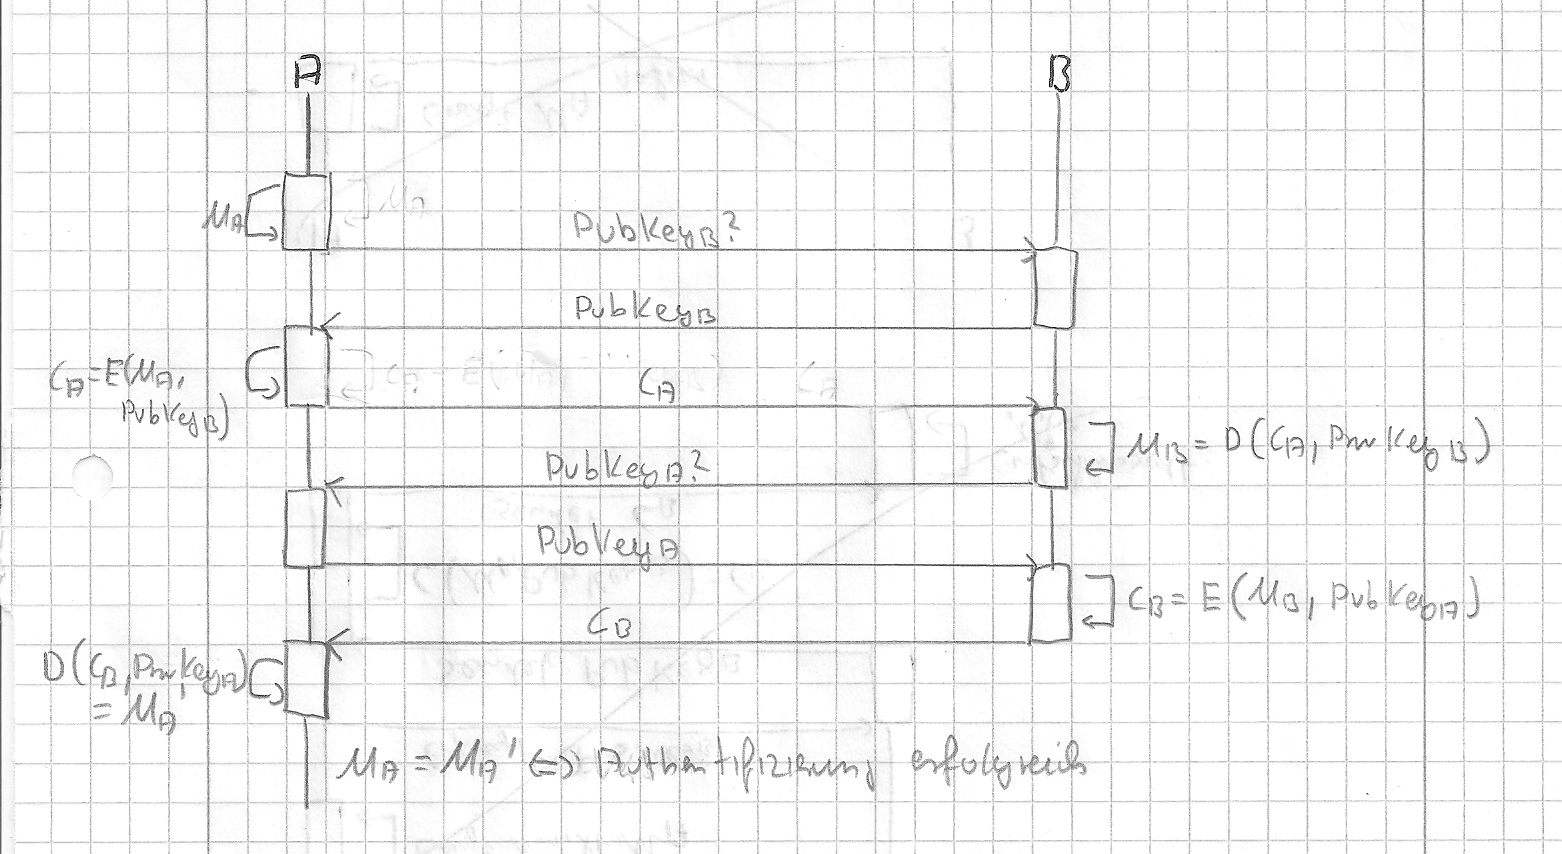 A B
MA
PubKeyB?
PubKeyB
CA=E(MA,
PubKeyB)
CA
MB = D(CA, PrivKeyB)
PubKeyA?
PubKeyA
CB = E(MB, PubKeyA)
CB
D(CB, PrivKeyA)
= MA'
MA = MA' ⇔ Authentifizierung erfolgreich